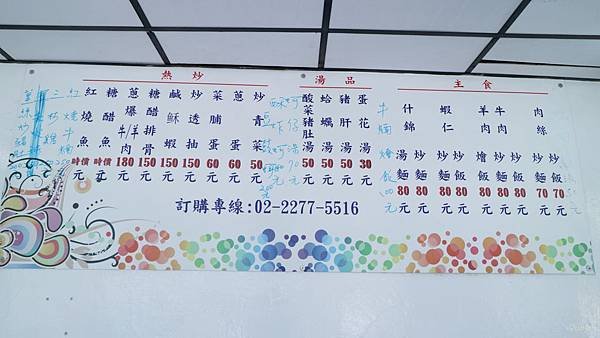 熱炒
紅燒魚時價元
糖醋魚時價元
蔥爆牛/羊肉180元
糖醋排骨150元
鹹酥蝦150元
炒透抽150元
菜脯蛋60元
蔥蛋60元
炒青菜50元
湯品
酸菜豬肚湯50元
蛤蠣湯50元
豬肝湯50元
蛋花湯30元
主食
牛腩燴飯100元
什錦
湯麵80元
炒麵80元
蝦仁
炒麵80元
炒飯80元
羊肉牛肉
燴飯80元
炒麵80元
炒飯80元
肉絲
炒麵70元
炒飯70元
訂購專線:02-2277-5516